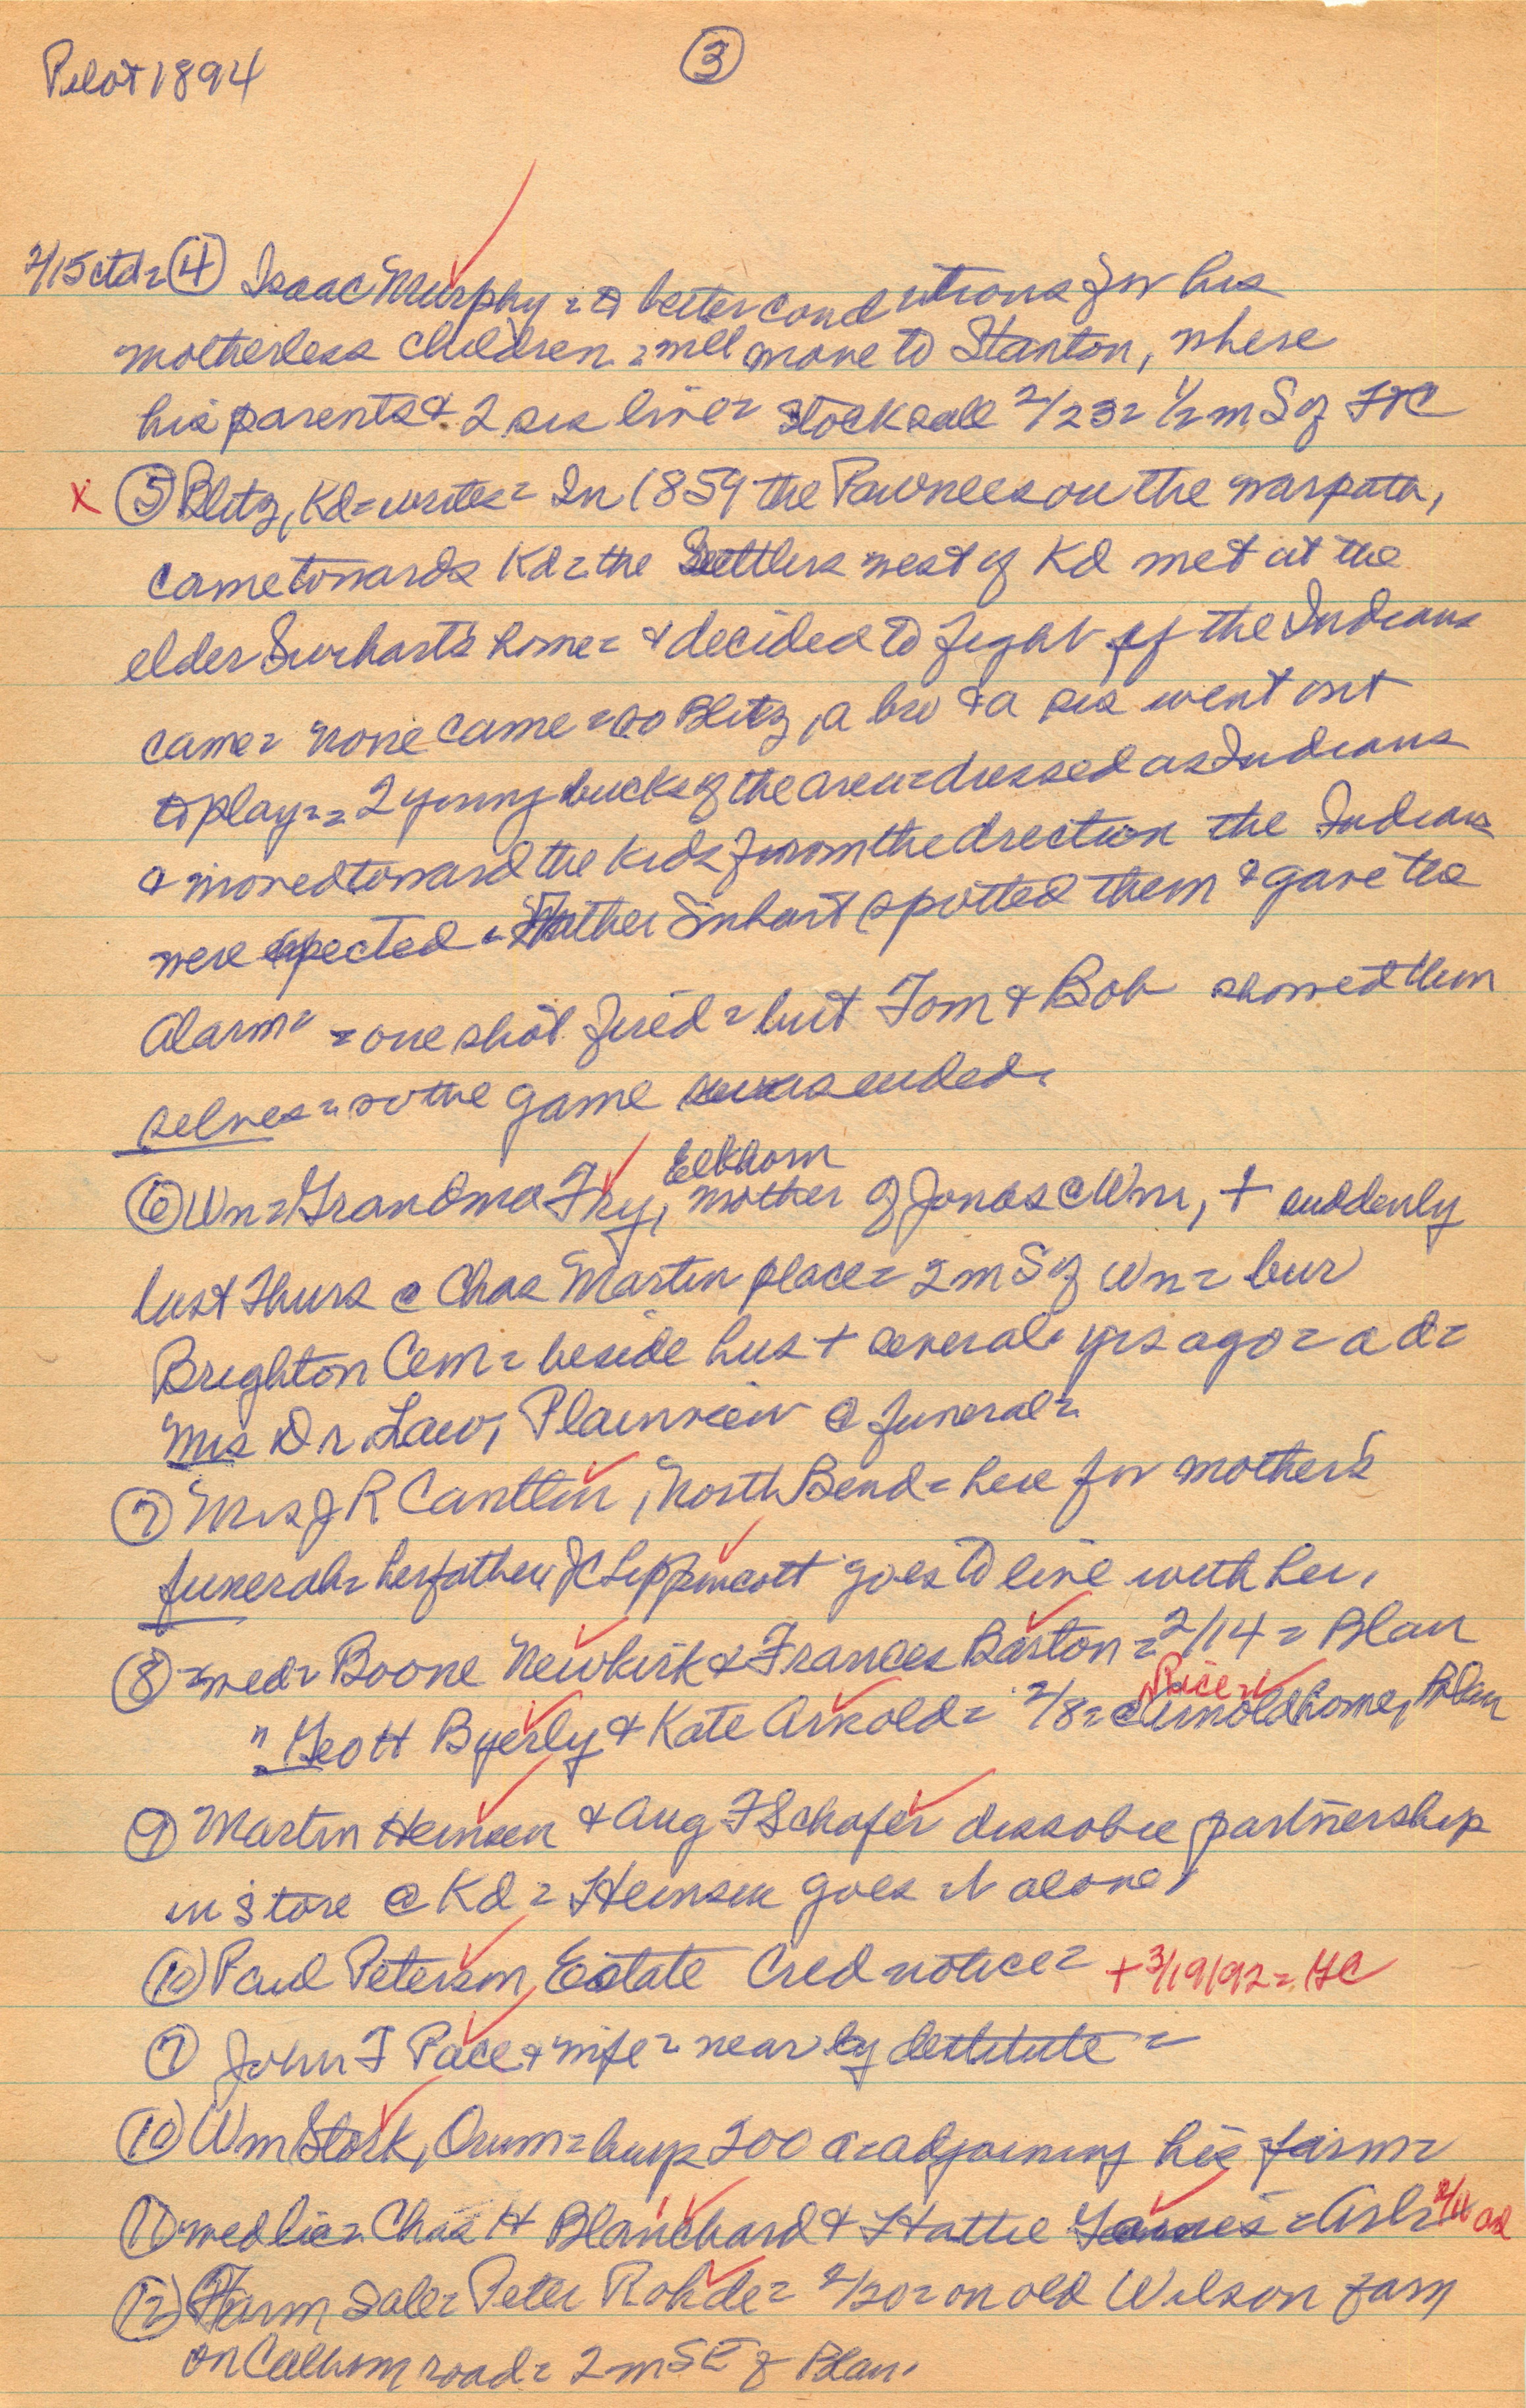 Pilot 1894
3
2/15 ctd= 4 Isaac Murphy = to better conditions for his
motherless children = will move to Stanton, where
his parents & 2 sis live = stock sale 2/23 = 1/2 m S of FtC
x 5 Blitz, Kd = writes = In 1859 the Pawnees on the warpath,
came towards Kd = the Settlers west of Kd met at the
elder home = & decided to fight if the Indians
came = none came = so Blitz, a bro & a sis went out
to play = = 2 young bucks of the area = dressed as Indians
& moved toward the kids from the drection the Indians
were expected = Father spotted them & gave the
alarm = = one shot fired = but Tom & Bob showed them
selves = so the game was ended.
Elkhorn
6 Wn = Grandma Fry, mother of Jonas & Wm, + suddenly
last Thurs @ Chas Martin place = 2 m S of Wn = bur
Brighton Cem = beside hus + several yrs ago = a d =
Mrs Dr Law, Plainview @ funeral =
7 Mrs J R Cantlin, North Bend = here for mother's
funeral = her father, J C Lippincott goes to live with her.
8 = wed = Boone Newkirk & Frances Barton = 2/14 = Blair
Rice =
" Geo H Byerly & Kate Arnold = 2/8 = @ Arnold home, Blair
9 Martin Heinsen & Aug F Schafer dissolve partnership
in store @ Kd = Heinsen goes it alone,
10 Paul Peterson, Estate Cred notice = + 3/19/92 = GC
7 John F Pace & wife = near by destitute =
10 Wm Stork, Orum = buys 200 a = adjoining his farm =
11 wed lic = Chas H Blanchard & Hattie = Arl =
12 Farm Sale = Peter Rohde = 2/20 = on old Wilson farm
on Calhoun road = 2 m SE of Blair.